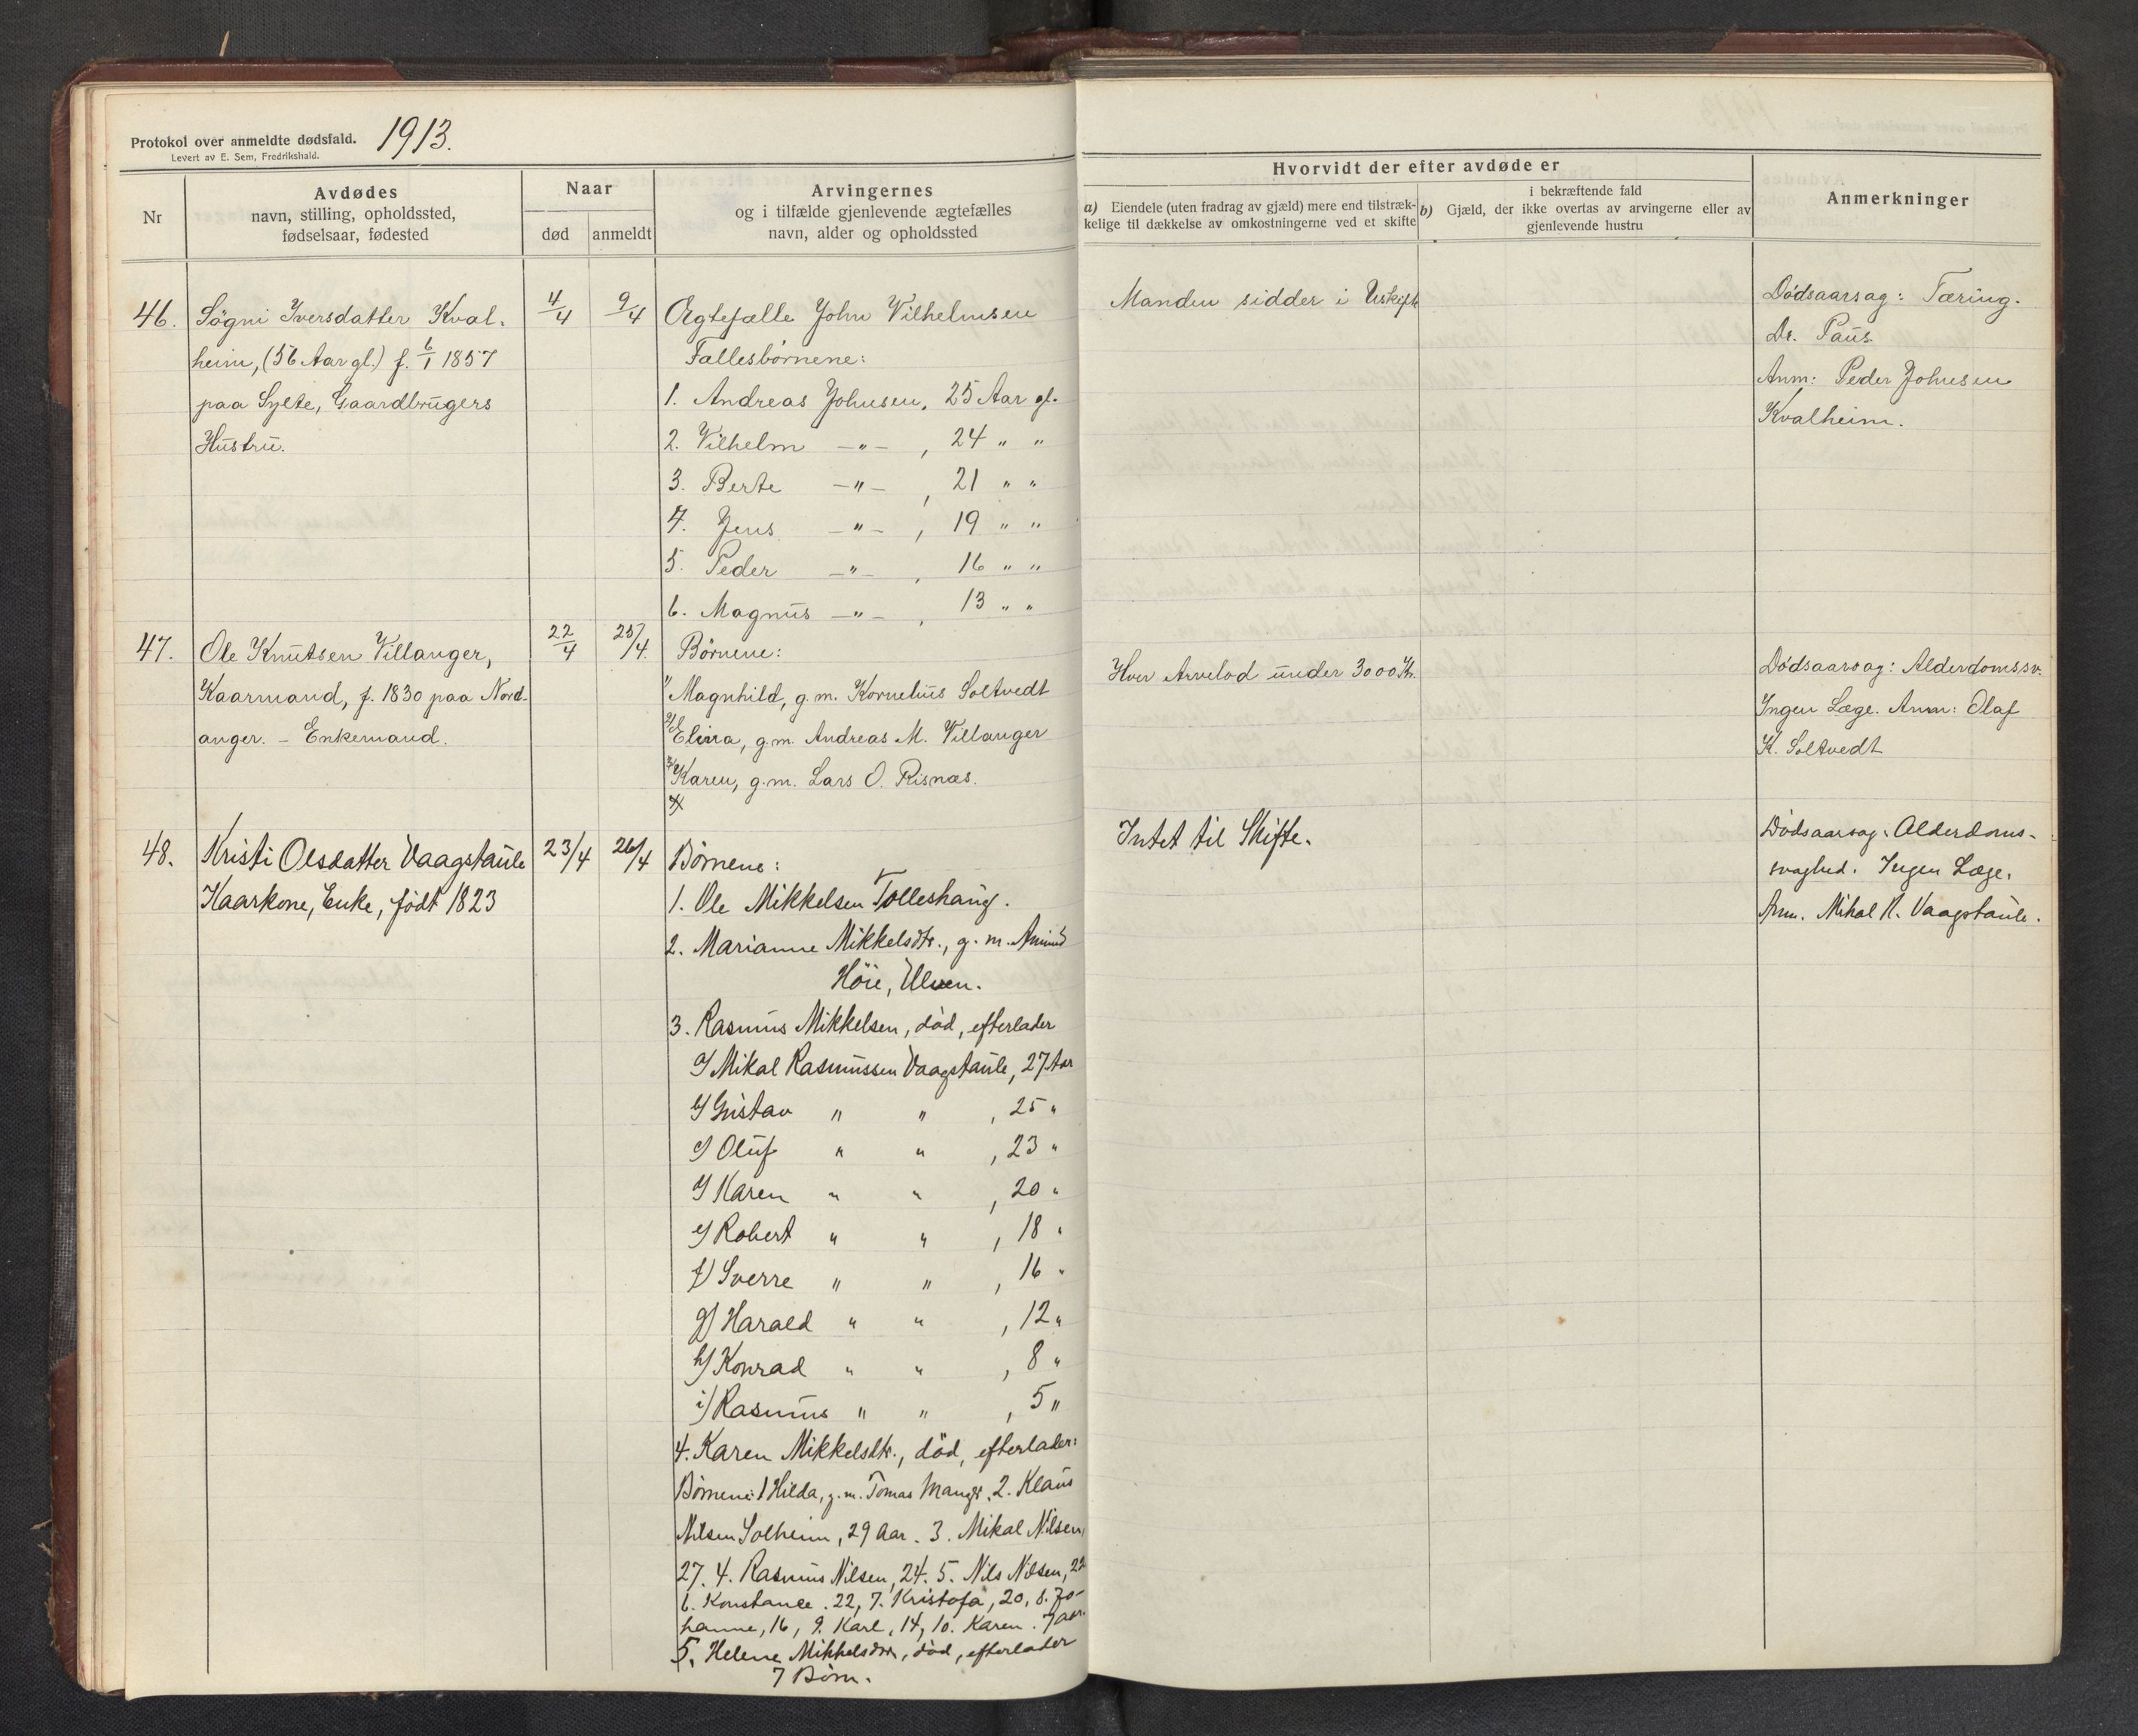 Protokol over anmeldte dødsfald. 1913.
Levert av E. Sem, Fredrikshald.
Nr
Avdødes
navn, stilling, opholdssted,
fødselsaar, fødested
Naar
død
anmeldt
Arvingernes
og i tilfælde gjenlevende ægtefælles
navn, alder og opholdssted
Hvorvidt der efter avdøde er
a) Eiendele (uten fradrag av gjæld) mere end tilstræk-
kelige til dækkelse av omkostningerne ved et skifte
i bekræftende fald
b) Gjæld, der ikke overtas av arvingerne eller av
gjenlevende hustru
Anmerkninger
46.
Søgni Iversdatter Kval-
heim, (56 Aar gl.) f. 6/1 1857
paa Sylte, Gaardbrugers
Hustru.
4/4
9/4
Ægtefælle John Vilhelmsen
Fællesbørnene:
1. Andreas Johnsen, 25 Aar gl.
2. Vilhelm —"— , 24 " "
3. Berte —"— , 21 " "
4. Jens —"— , 19 " "
5. Peder —"— , 16 " "
6. Magnus —"— , 13 " "
Manden sidder i Uskifte
Dødsaarsag: Tæring.
Dr. Paus.
Anm: Peder Johnsen
Kvalheim.
47.
Ole Knutsen Villanger,
Kaarmand, f. 1830 paa Nord-
anger. – Enkemand.
22/4
25/4.
Børnene:
1/ Magnhild, g.m. Kornelius Soltvedt
2/ Elina, g.m. Andreas M. Villanger
3/ Karen, g.m. Lars O. Risnæs.
Hver Arvelod under 3000 Kr.
Dødsaarsag: Alderdomssv.
Ingen Læge. Anm: Olaf
K. Soltvedt
48.
Kristi Olsdatter Vaagstaule
Kaarkone, Enke, født 1823
23/4
26/4
Børnene:
1. Ole Mikkelsen Tolleshaug.
2. Marianne Mikkelsdtr., g. m. Amund
Höie, Ulven.
3. Rasmus Mikkelsen, död, efterlader
a/ Mikal Rasmussen Vaagstaule, 27 Aar
b/ Gustav " " , 25 "
c/ Oluf " " , 23 "
d/ Karen " " , 20 "
e/ Robert " " , 18 "
f/ Sverre " " , 16 "
g/ Harald " " , 12 "
h/ Konrad " " , 8 "
i/ Rasmus " " , 5 "
4. Karen Mikkelsdtr., död, efterlader:
Børnene: 1 Hilda, g.m. Tomas Manger, 2. Klaus
Nilsen Solheim, 29 Aar. 3. Mikal Nilsen,
27. 4. Rasmus Nilsen, 24. 5. Nils Nilsen, 22
6. Konstance. 22, 7. Kristofa, 20, 8. Jo-
hanne, 16, 9. Karl, 14, 10. Karen. 7 aar.
5. Helene Mikkelsdtr, död, efterlader
7 Börn.
Intet til Skifte.
Dödsaarsag: Alderdoms-
svaghed. Ingen Læge.
Anm. Mikal R. Vaagstaule.